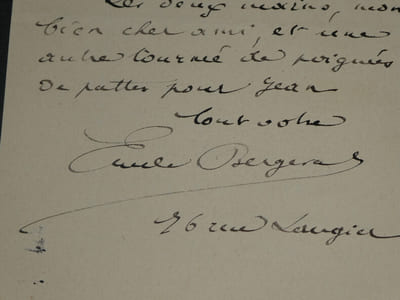 Les deux mains, mon
bien cher ami, et une
autre tournée de poignées
de pattes pour Jean
Tout votre
Emile Bergerat
76 rue Laugier